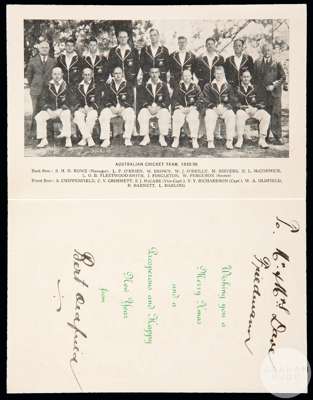 AUSTRALIAN CRICKET TEAM, 1935-36
Back Row: S. H. D. ROWE (Manager), L. P. O'BRIEN, W. BROWN, W. J. O'REILLY, M. SIEVERS, E. L. McCORMICK,
L. O'B. FLEETWOOD-SMITH, J. FINGLETON, W. FERGUSON (Scorer)
Front Row: A. CHIPPERFIELD, C. V. GRIMMETT, S. J. McCABE (Vice-Capt.), V. Y. RICHARDSON (Capt.), W. A. OLDFIELD,
B. BARNETT, L. DARLING
To, Mr & Mrs Dave
Friedmann
Wishing you a
Merry Xmas
and a
Prosperous and Happy
New Year
from
Bert Oldfield